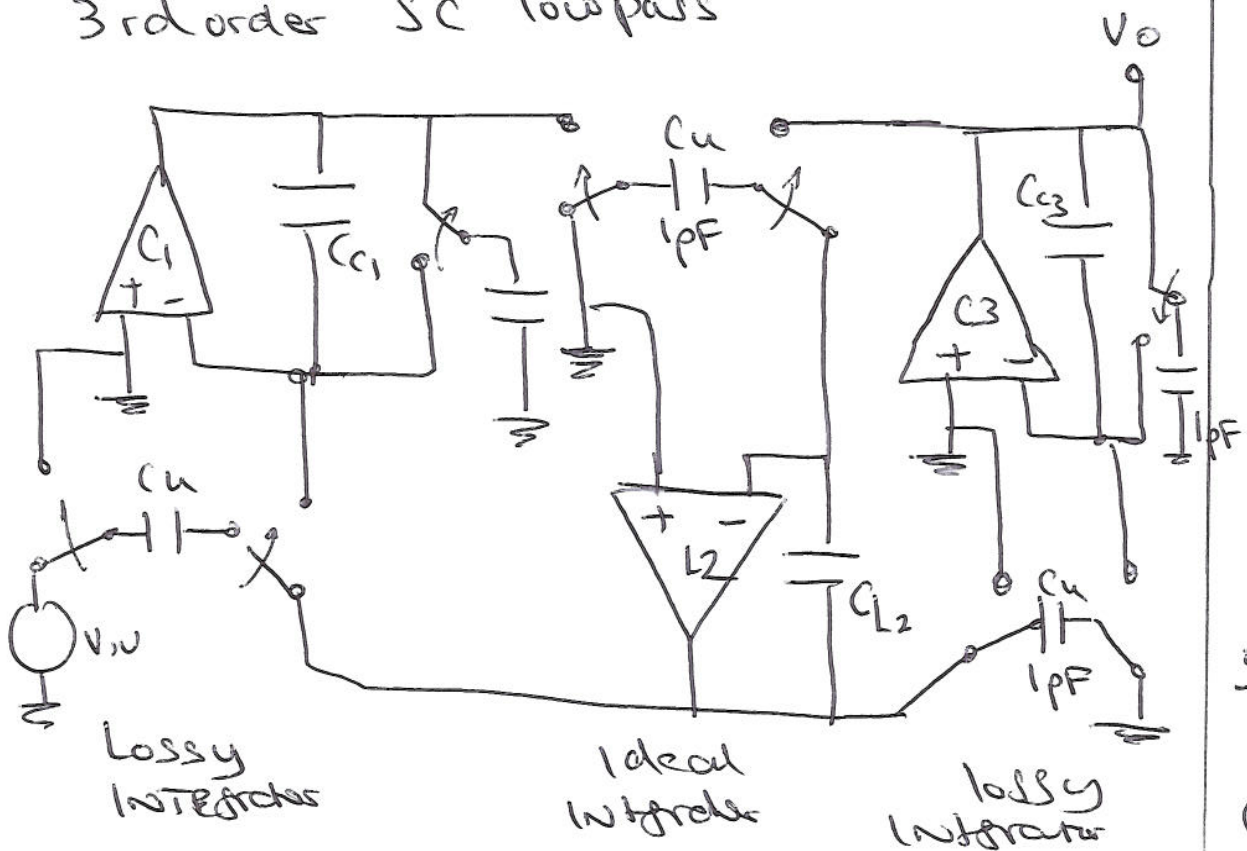 3rd order SC lowpass
Vo
Cu
1pF
C1
+ -
CC1
CC3
C3
+ -
1pF
Cu
+ -
L2
CL2
Cu
1pF
Lossy
INTEgrator
Ideal
Intgrator
lossy
INtgrator